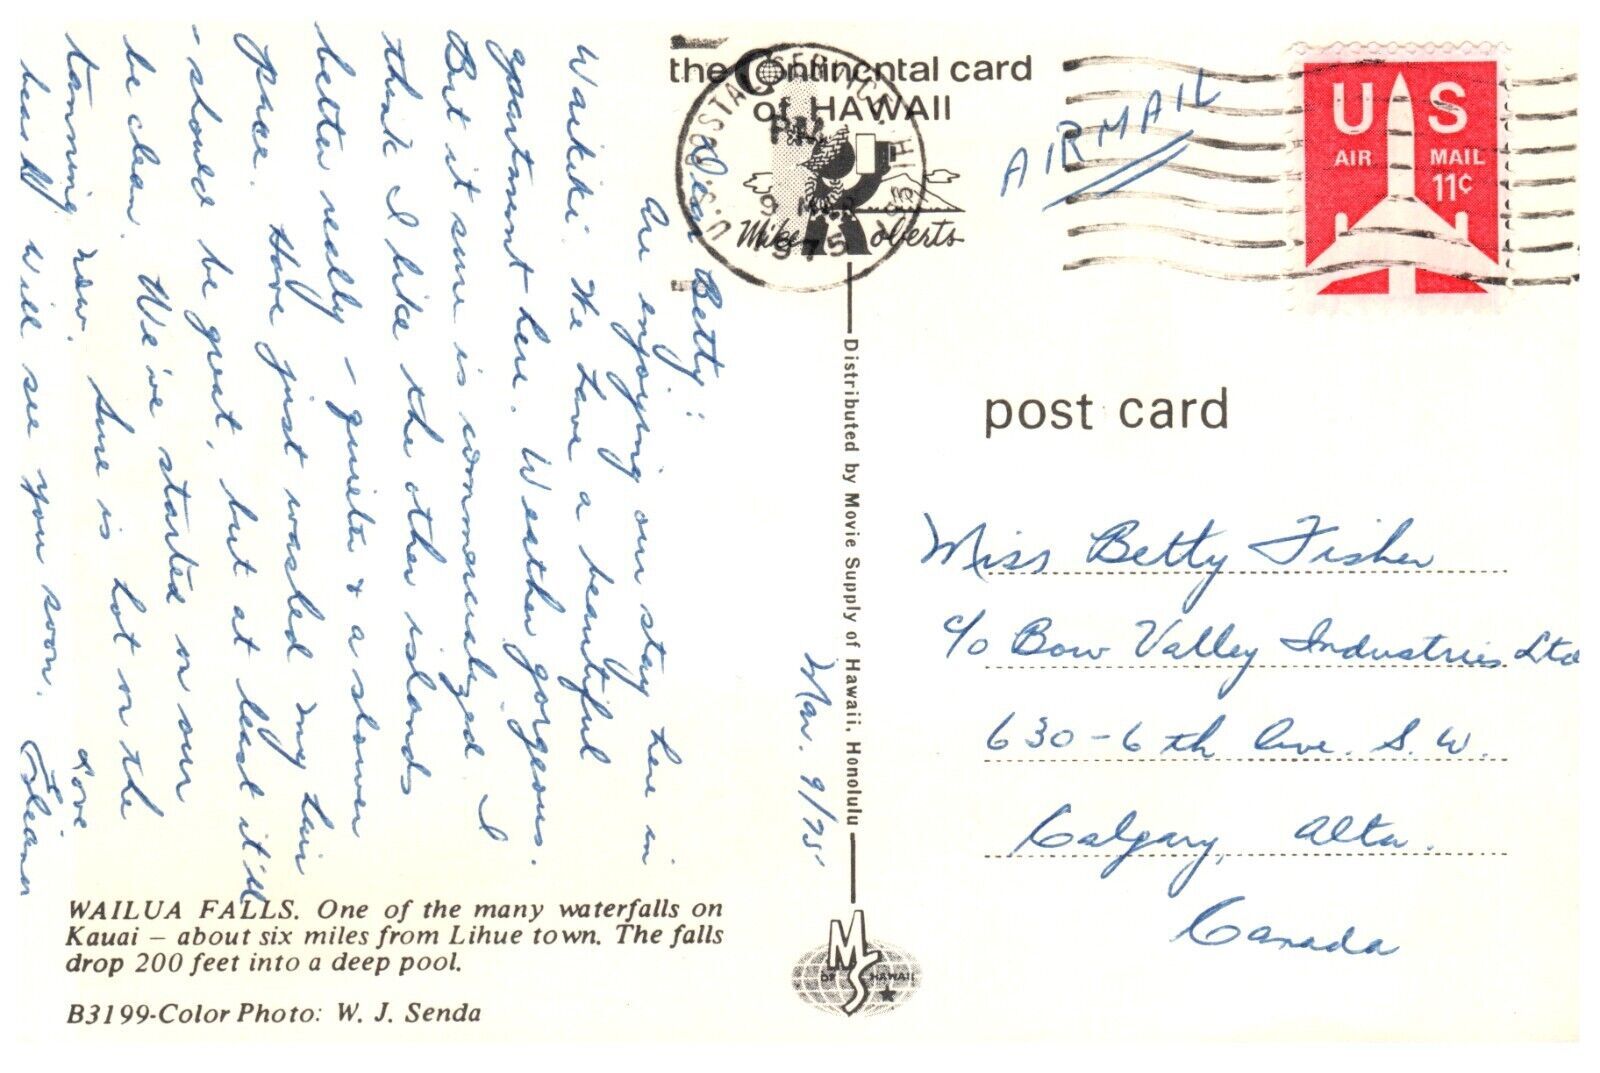 the Continental card
of HAWAII
Mike Roberts
U.S. POSTAL SERVICE HI
PM
9 MAR
1975
AIRMAIL
US
AIR MAIL
11¢
Dear Betty:
Are enjoying our stay here in
Waikiki. We have a beautiful
apartment here. Weather gorgeous.
But it sure is commercialized I
think I like the other islands
better really - quieter & a slower
pace. Have just washed my hair
- should be great, but at least it'll
be clean. We've started on our
tanning now. Sure is hot on the
beach. Will see you soon.
Love
Eleanor
Mar. 9/75
Distributed by Movie Supply of Hawaii, Honolulu
post card
Miss Betty Fisher
c/o Bow Valley Industries Ltd
630-6th Ave. S.W.
Calgary, Alta.
Canada
WAILUA FALLS. One of the many waterfalls on
Kauai – about six miles from Lihue town. The falls
drop 200 feet into a deep pool.
B3199-Color Photo: W. J. Senda
MS
OF HAWAII